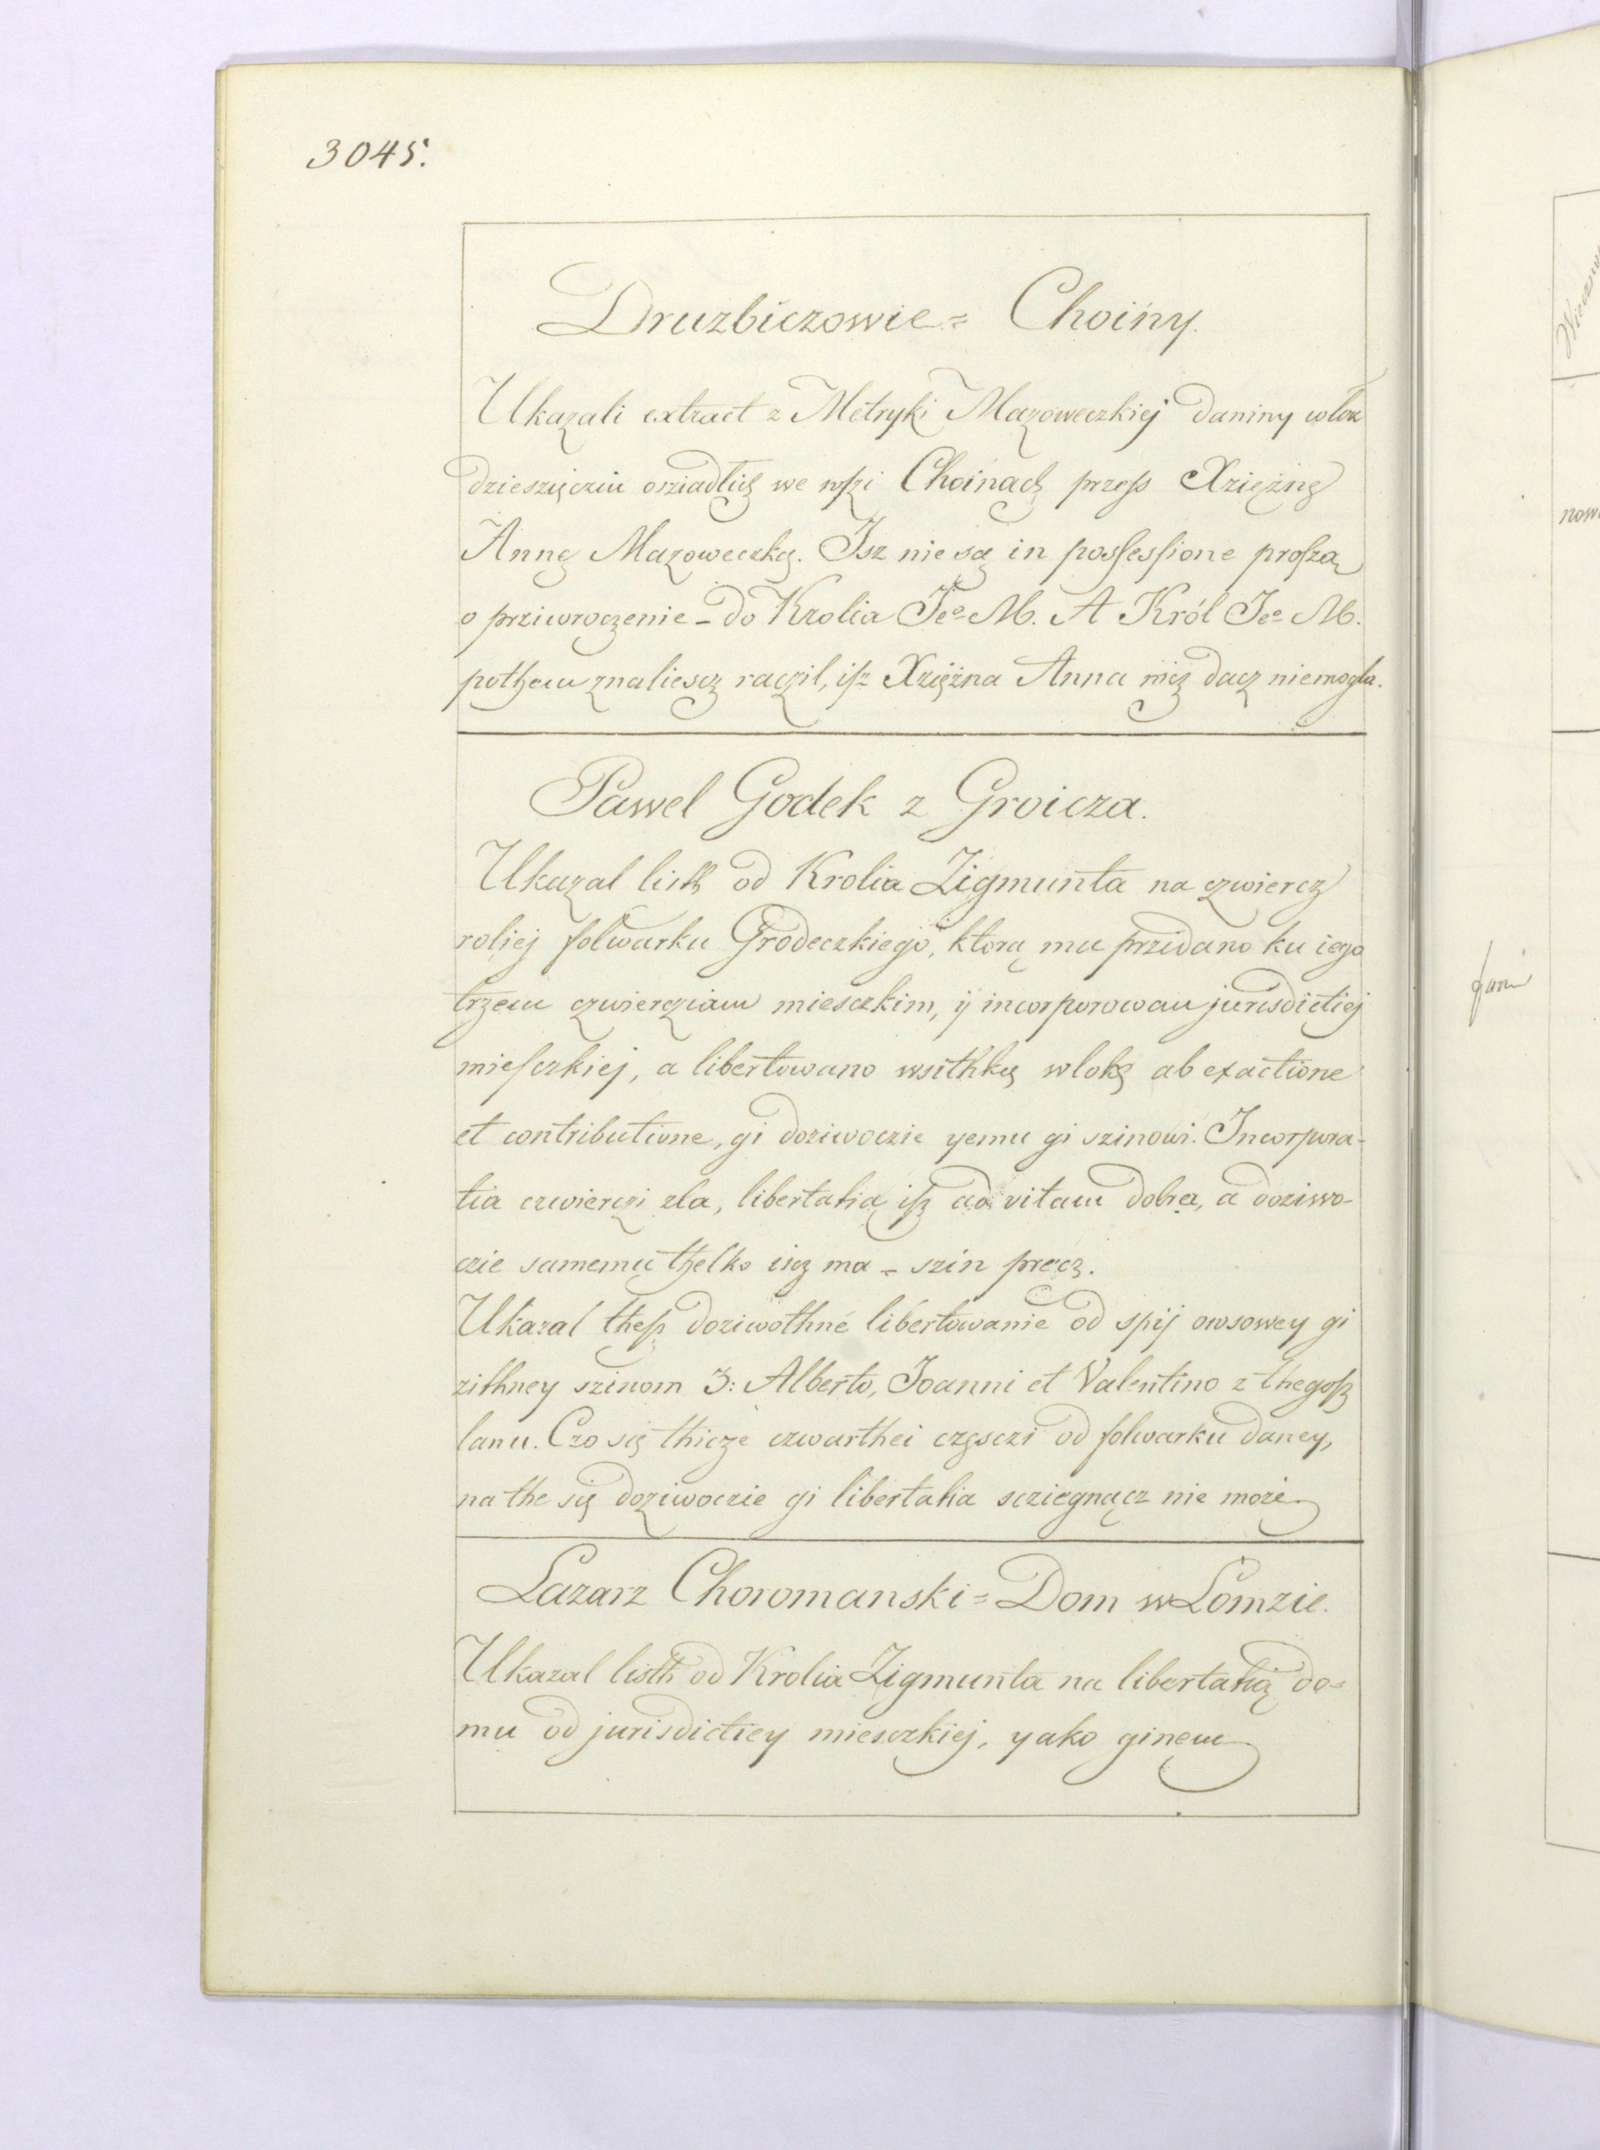 3045.
Druzbiczowie = Choiny.
Ukazali extract z Metryki Mazoweczkiej daniny wlok
dzieszięcziu osziadlich we wszi Choinach przess Xziężnę
Annę Mazoweczkę. Isz nie są in possessione proszą
o prziwroczenie – do Krolia Jeº M. A Król Jeº M.
pothem znaliescz raczil, isz Xziężna Anna nicz dacz niemogla.
Pawel Godek z Groicza.
Ukazal listh od Krolia Zigmunta na czwiercz
roliej folwarku Grodeczkiego, ktorą mu przidano ku iego
trzem czwiercziam miesczkim, ij incorporowan jurisdictiej
miesczkiej, a libertowano wsithkę wlokę ab exactione
et contributione, gi doziwoczie yemu gi szinowi. Incorpora-
tia czwierczi zla, libertatią isz ad vitam dobra, a doziwo-
czie samemu thelko iscz ma – szin precz.
Ukazal thesz doziwothne libertowanie od spij owsowey gi
zithney szinom 3: Alberto, Joanni et Valentino z thegosz
lanu. Czo się thicze czwarthei częsczi od folwarku daney,
na the się doziwoczie gi libertatia scziegnącz nie może
Lazarz Choromanski = Dom w Lomzie.
Ukazal listh od Krolia Zigmunta na libertatią do=
mu od jurisdictiey miesczkiej, yako ginem